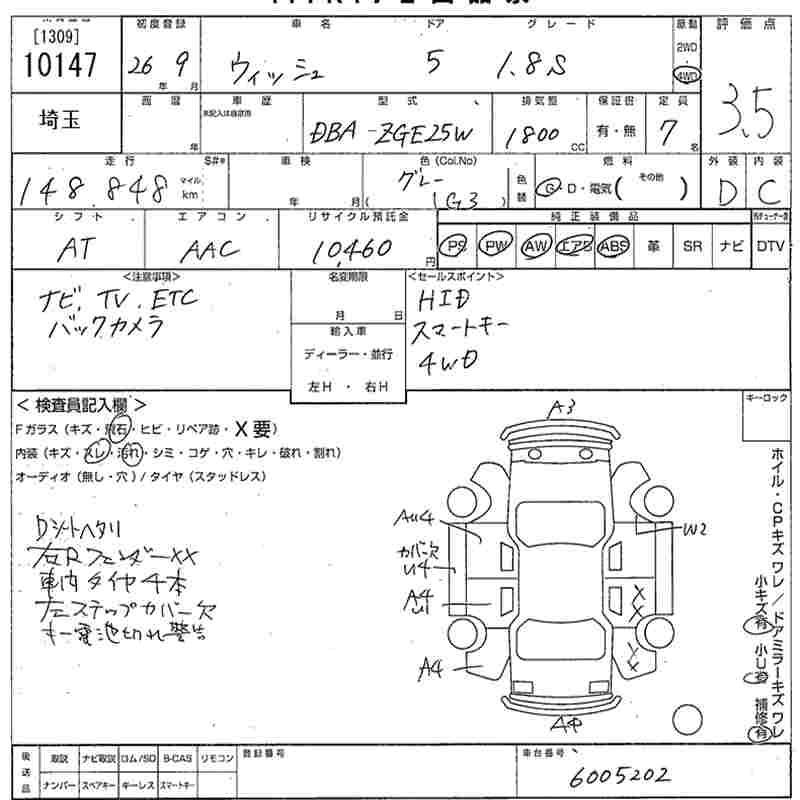 [1309]
10147
初度登録
26 年 9 月
車名
ウィッシュ
ドア
5
グレード
1.8S
駆動
2WD
4WD
評価点
3.5
埼玉
画暦
年
車歴
未記入は自家用
型式
DBA-ZGE25W
排気量
1800 CC
保証書
有・無
定員
7 名
走行
148,848 マイル km
S#*
車検
年 月
色(Col.No)
グレー
(G3)
色替
燃料
G・D・電気( その他 )
外装
D
内装
C
シフト
AT
エアコン
AAC
リサイクル預託金
10,460 円
純正装備品
PS PW AW エアB ABS 革 SR ナビ DTV
<注意事項>
ナビ、TV、ETC
バックカメラ
名変期限
月 日
輸入車
ディーラー・並行
左H ・ 右H
<セールスポイント>
HID
スマートキー
4WD
<検査員記入欄>
Fガラス(キズ・飛石・ヒビ・リペア跡・X要)
内装(キズ・スレ・汚れ・シミ・コゲ・穴・キレ・破れ・割れ)
オーディオ(無し・穴)/タイヤ(スタッドレス)
Dシートヘタリ
右Rフェンダー××
車内タイヤ4本
左ステップカバー欠
キー電池切れ警告
A3
AU4
カバー欠
U4
A4
U1
A4
W2
X
X
X
X
キーロック
ホイル・CPキズワレ/ドアミラーキズワレ
小キズ有 小U有 補修有
後送品
取説 ナビ取説 ロム/SD B-CAS リモコン
ナンバー スペアキー キーレス スマートキー
登録番号
車台番号
6005202